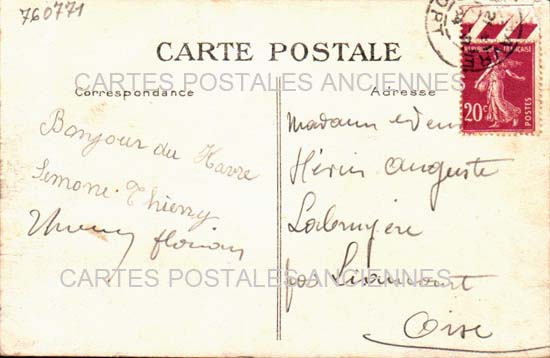 760771
CARTE POSTALE
CARTES POSTALES ANCIENNES
Correspondance
Adresse
Bonjour du Havre
Simone Thierry
Thierry florian
RÉPUBLIQUE FRANÇAISE
20c
POSTES
Madame
Hérin Auguste
Labruyère
par Liancourt
Oise
CARTES POSTALES ANCIENNES